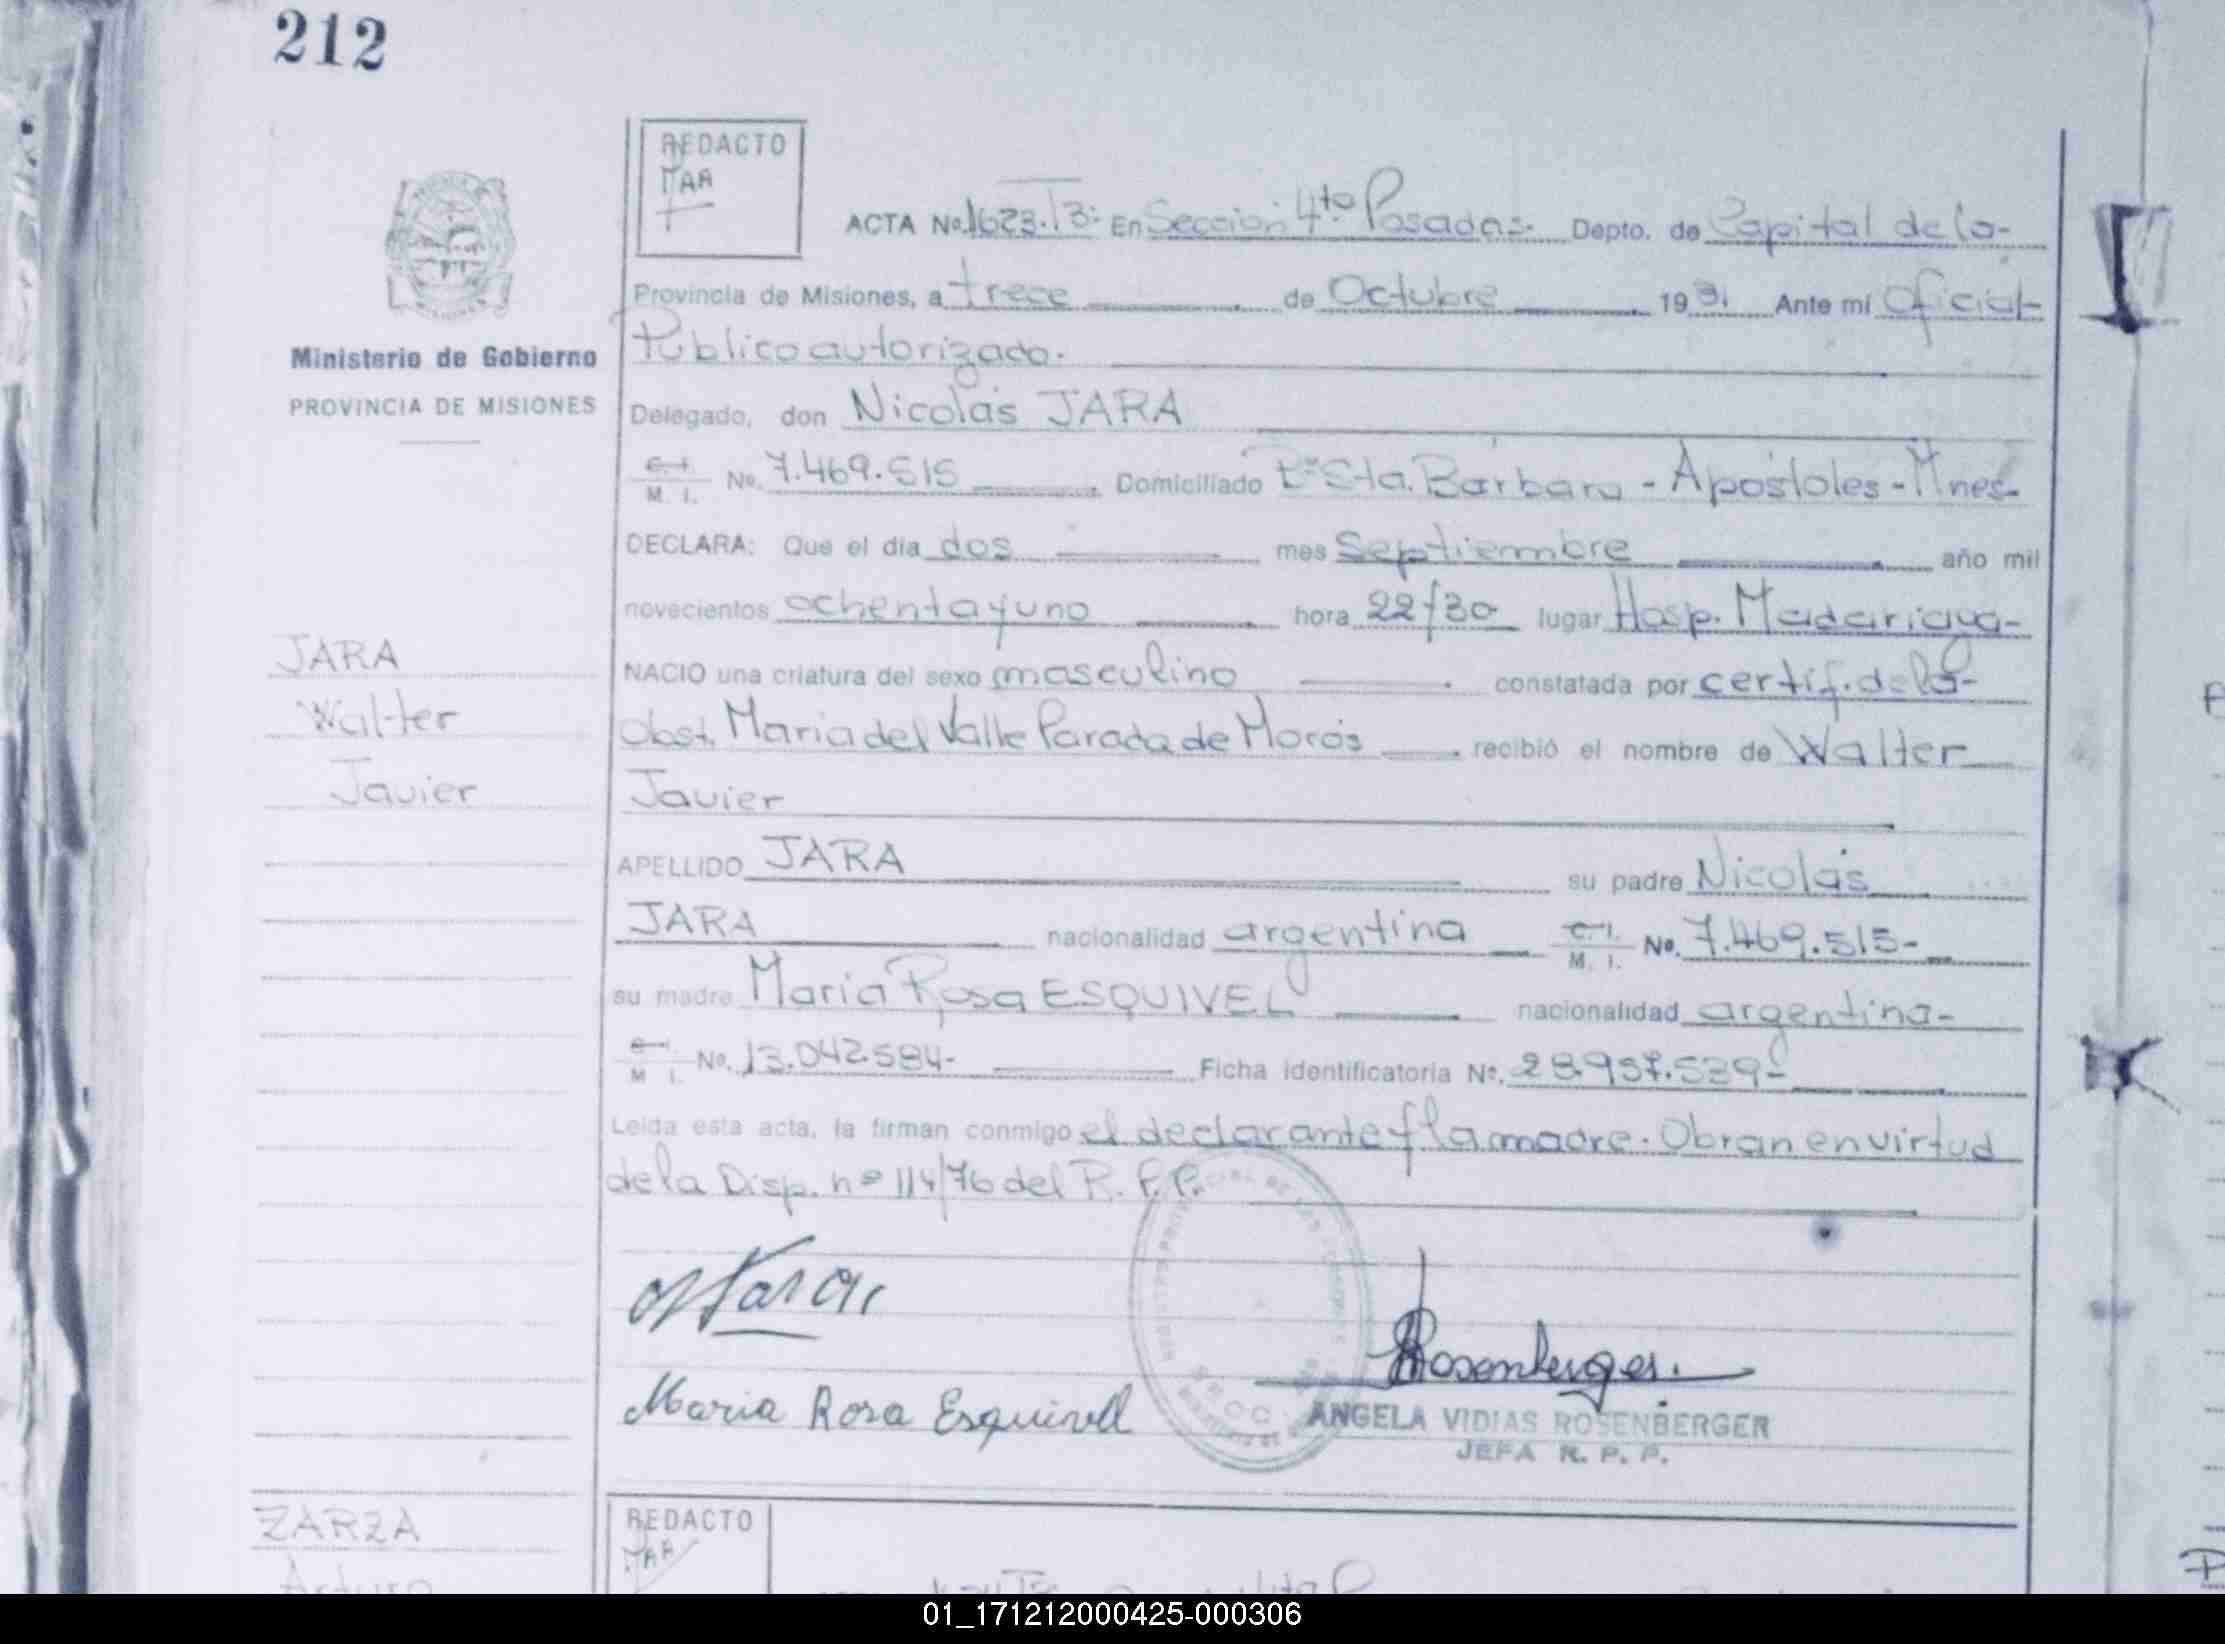 212
REDACTO
MAA
ACTA No. 1623.T3: En Sección 4ta Posadas. Depto. de Capital de la-
Provincia de Misiones, a trece de Octubre 1981 Ante mí Oficial
Público autorizado.
Ministerio de Gobierno
PROVINCIA DE MISIONES
Delegado, don Nicolás JARA
C. I.
M. I.
No. 7.469.515 Domiciliado Bº Sta. Bárbara - Apóstoles - Mnes-
DECLARA: Que el día dos mes Septiembre año mil
novecientos ochenta y uno hora 22/30 lugar Hosp. Madariaga-
NACIO una criatura del sexo masculino constatada por certif. de la-
Obst. Maria del Valle Parada de Morós recibió el nombre de Walter
Javier
JARA
Walter
Javier
APELLIDO JARA su padre Nicolás
JARA nacionalidad argentina C. I. M. I. No. 7.469.515-
su madre Maria Rosa ESQUIVEL nacionalidad argentina-
C. I. M. I. No. 13.042.584- Ficha identificatoria No. 28.957.539-
Leída esta acta, la firman conmigo el declarante y la madre. Obran en virtud
de la Disp. nº 114/76 del R. P. P.
Jara
Rosenberger.
Maria Rosa Esquivel
ANGELA VIDIAS ROSENBERGER
JEFA R. P. P.
ZARZA
Arturo
REDACTO
MAA
01_171212000425-000306